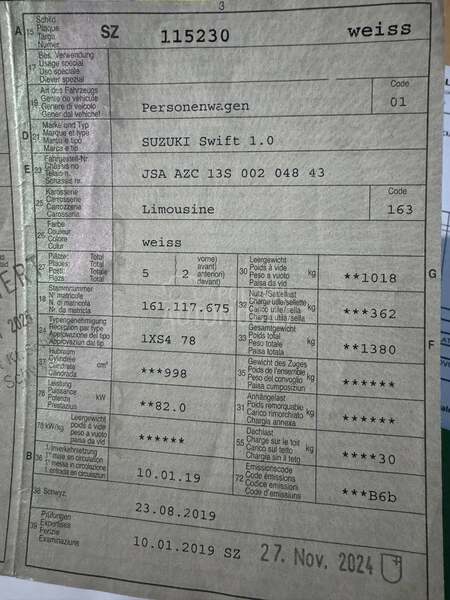 3
A 15 Schild
Plaque
Targa
Numer
SZ 115230 weiss
17 Bes. Verwendung
Usage spécial
Uso speciale
Diever spezial
19 Art des Fahrzeugs
Genre de véhicule
Genere di veicolo
Gener dal vehichel
Personenwagen
Code
01
D 21 Marke und Typ
Marque et type
Marca e tipo
Marca e tip
SUZUKI Swift 1.0
E 23 Fahrgestell-Nr.
Châssis no
Telaio n.
Schassis nr.
JSA AZC 13S 002 048 43
25 Karosserie
Carrosserie
Carrozzeria
Carosseria
Limousine
Code
163
26 Farbe
Couleur
Colore
Colur
weiss
27 Plätze: Total
Places: Total
Posti: Totale
Plazs: Total
5 2 vorne)
avant)
anteriori)
davant)
30 Leergewicht
Poids à vide
Peso a vuoto
Paisa da vid
kg **1018 G
18 Stammnummer
N° matricule
N. di matricola
Nr. da matricla
161.117.675
32 Nutz-/Sattellast
Charge utile/sellette
Carico utile/sella
Chargia utila/sella
kg ***362
24 Typengenehmigung
Réception par type
Approvazione del tipo
Approvaziun dal tip
1XS4 78
33 Gesamtgewicht
Poids total
Peso totale
Paisa totala
kg **1380 F
37 Hubraum
Cylindrée
Cilindrata
Cilindrada
cm³ ***998
35 Gewicht des Zuges
Poids de l'ensemble
Peso del convoglio
Paisa cumposiziun
kg ******
76 Leistung
Puissance
Potenza
Prestaziun
kW **82.0
31 Anhängelast
Poids remorquable
Carico rimorchiato
Chargia annexa
kg ******
78 kW/kg Leergewicht
poids à vide
peso a vuoto
paisa da vid
******
55 Dachlast
Charge sur le toit
Carico sul tetto
Chargia sin il tetg
kg ****30
B 36 1. Inverkehrsetzung
1re mise en circulation
1a messa in circolazione
1. entrada en circulaziun
10.01.19
72 Emissionscode
Code émissions
Codice emissioni
Code d'emissiuns
***B6b
38 Schwyz,
23.08.2019
39 Prüfungen
Expertises
Perizie
Examinaziuns
10.01.2019 SZ 27. Nov. 2024